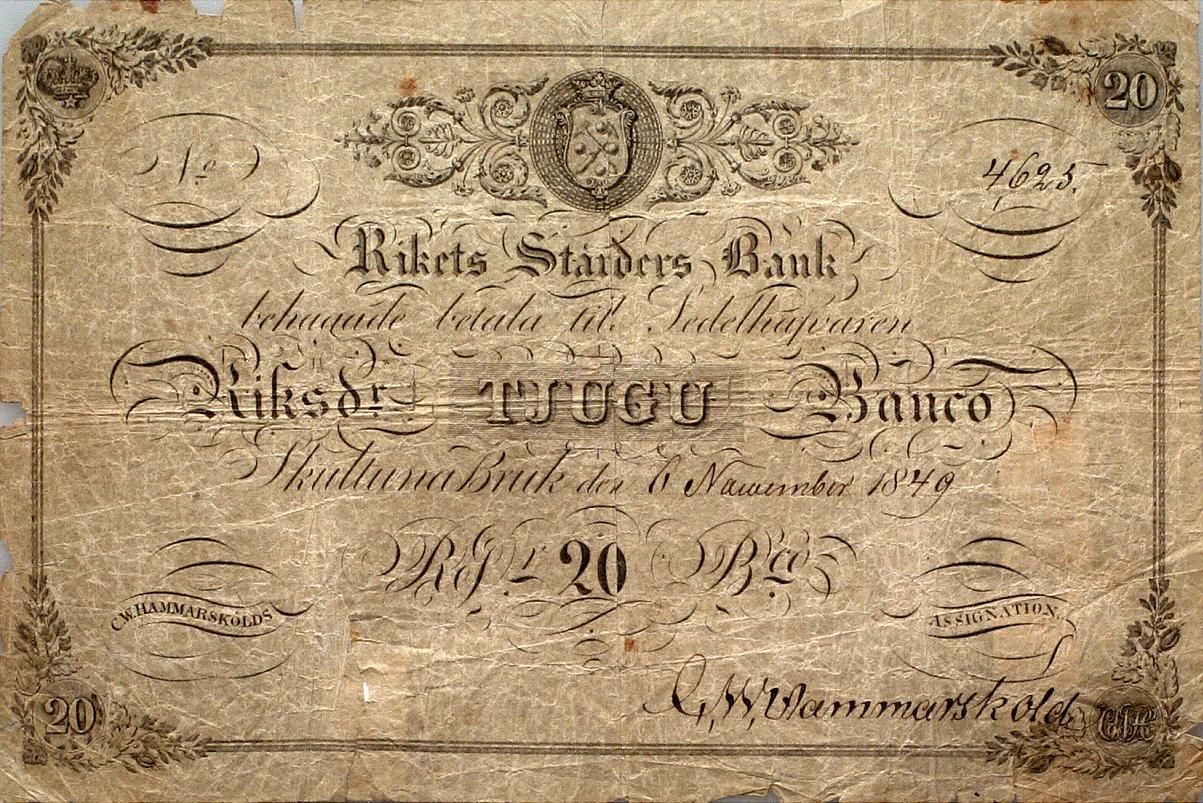 20
No 4625.
Rikets Ständers Bank
behagade betala till Sedelhafvaren
Riksdr TJUGU Banco
Skultuna Bruk den 6 November 1849
RGr 20 Bco
C.W. HAMMARSKÖLDS
ASSIGNATION.
C, W, Hammarskold
20